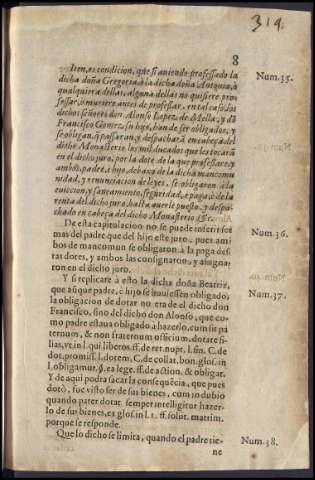 314.
8
Iten, es condicion, que si aviendo professado la
dicha doña Gregoria, ò la dicha doña Antonia, ò
qualquiera dellas, alguna dellas no quisiere pro-
fessar, ò muriere antes de professar, en tal caso, los
dichos señores don Alonso Lopez de Mella, y dõ
Francisco Gomez, su hijo, han de ser obligados, y
se obligan, q̃ passaran, y despacharà en cabeça del
dicho Monasterio, los mil ducados que les tocarà
en el dicho juro, por la dote de la que professare, y
ambos, padre, è hijo, debaxo de la dicha mancomu
nidad, y renunciacion de leyes, se obligaron à la
eviccion, y saneamiento, seguridad, è paga, è de la
renta del dicho juro, hasta averle puesto, y despa-
chado en cabeça del dicho Monasterio, &c.
Num.35.
De esta capitulacion no se puede inferir so-
mas del padre que del hijo este juro, pues am-
bos de mancomun se obligaron à la paga destas
dotes, y ambos las consignaron, y assigna-
ron en el dicho juro.
Num.36.
Y si replicare à esto la dicha doña Beatriz,
que aũque padre, è hijo se huviessen obligado,
la obligacion de dotar no era de el dicho don
Francisco, sino del dicho don Alonso, que co-
mo padre estava obligado à hazerlo, cum sit pa
ternum, & non fraternum officium, dotare si-
lias, vt in l. qui liberos, ff. de rit. nupt. l. fin. C. de
dot. promiss. l. dotem, C. de collat. bon. glos. in
l. obligamur. §. ea lege. ff. de action. & obligat.
Y de aqui podra sacar la consequẽcia, que pues
dotò, fue visto ser de sus bienes, cum in dubio
quando pater dotat, semper intelligitur hazer-
lo de sus bienes, ex glos. in l. 1. ff. solut. matrim.
porque se responde.
Num.37.
Que lo dicho se limita, quando el padre tie-
ne
Num.38.